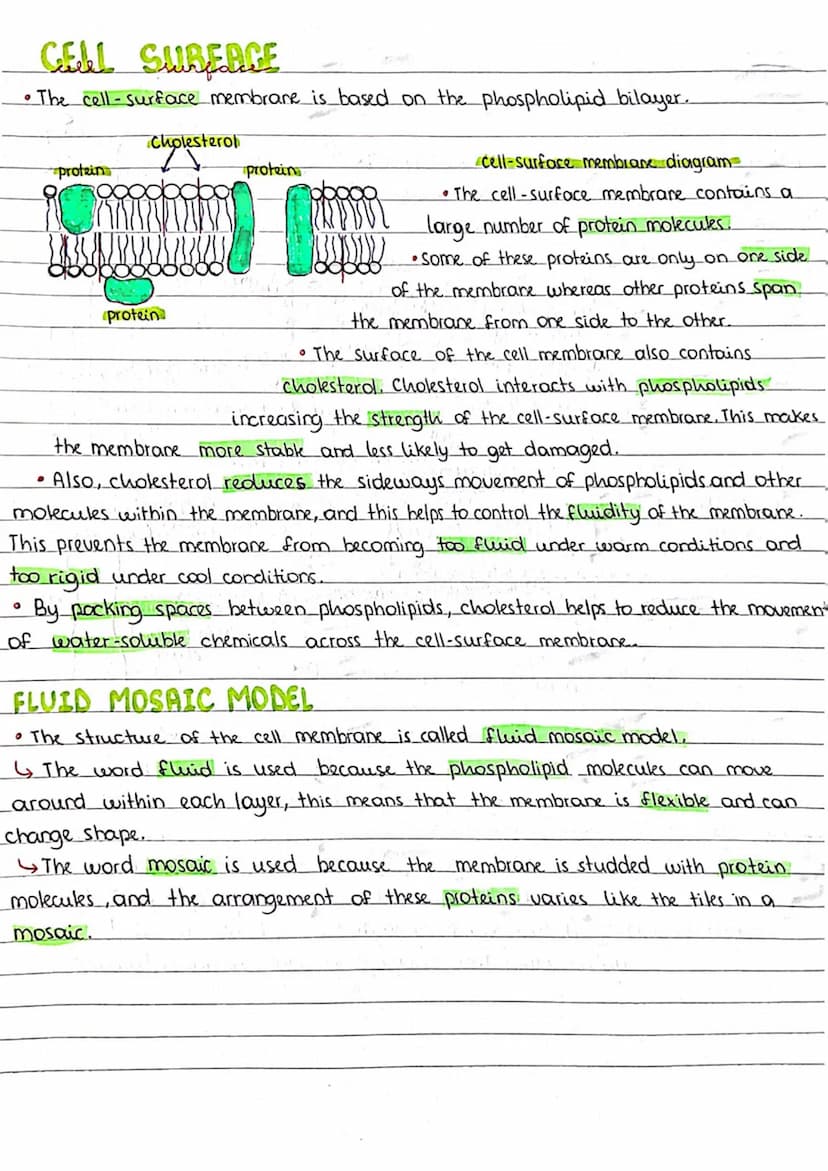 CELL SURFACE
• The cell-surface membrane is based on the phospholipid bilayer.
cholesterol
protein
protein
protein
cell-surface membrane diagram
• The cell-surface membrane contains a
large number of protein molecules.
• Some of these proteins are only on one side
of the membrane whereas other proteins span
the membrane from one side to the other.
• The surface of the cell membrane also contains
cholesterol. Cholesterol interacts with phospholipids
increasing the strength of the cell-surface membrane. This makes
the membrane more stable and less likely to get damaged.
• Also, cholesterol reduces the sideways movement of phospholipids and other
molecules within the membrane, and this helps to control the fluidity of the membrane.
This prevents the membrane from becoming too fluid under warm conditions and
too rigid under cool conditions.
• By packing spaces between phospholipids, cholesterol helps to reduce the movement
of water-soluble chemicals across the cell-surface membrane.
FLUID MOSAIC MODEL
• The structure of the cell membrane is called fluid mosaic model.
↳ The word fluid is used because the phospholipid molecules can move
around within each layer, this means that the membrane is flexible and can
change shape.
↳ The word mosaic is used because the membrane is studded with protein
molecules, and the arrangement of these proteins varies like the tiles in a
mosaic.